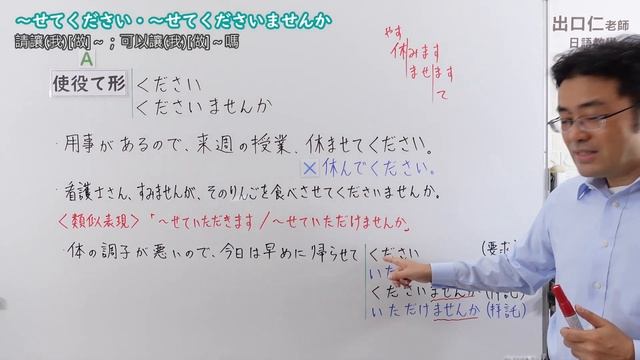 ～せてください・～せてくださいませんか
請讓(我)[做]～；可以讓(我)[做]～嗎
出口仁老師
日語教學
A
使役て形
ください
くださいませんか
やす
休みます
ませます
て
・用事があるので、来週の授業、休ませてください。
×休んでください。
・看護士さん、すみませんが、そのりんごを食べさせてくださいませんか。
〈類似表現〉「～せていただきます/～せていただけませんか」
・体の調子が悪いので、今日は早めに帰らせて
ください (要求)
いた
くださいませんか
いただけませんか (拝託)